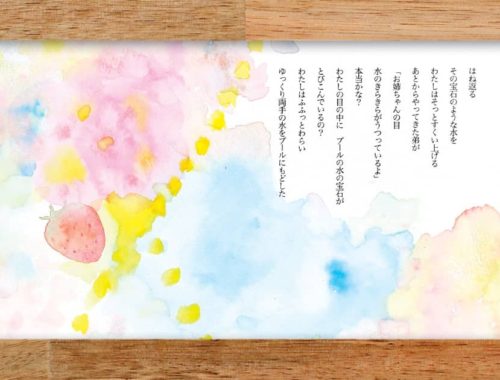 はね返る
その宝石のような水を
わたしはそっとすくい上げる
あとからやってきた弟が
「お姉ちゃんの目
水のきらきらがうつっているよ」
本当かな?
わたしの目の中に　プールの水の宝石が
とびこんでいるの?
わたしはふふっとわらい
ゆっくり両手の水をプールにもどした